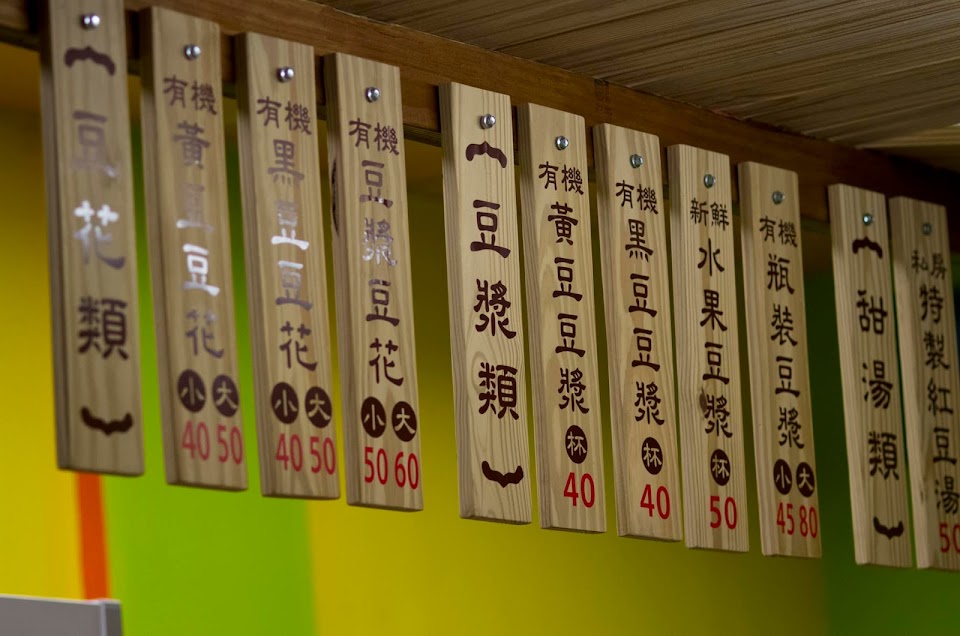 豆花類
有機
黃豆豆花
小 大
40 50
有機
黑豆豆花
小 大
40 50
有機
豆漿豆花
小 大
50 60
豆漿類
有機
黃豆豆漿
杯
40
有機
黑豆豆漿
杯
40
新鮮
水果豆漿
杯
50
有機
瓶裝豆漿
小 大
45 80
甜湯類
私房
特製紅豆湯
50